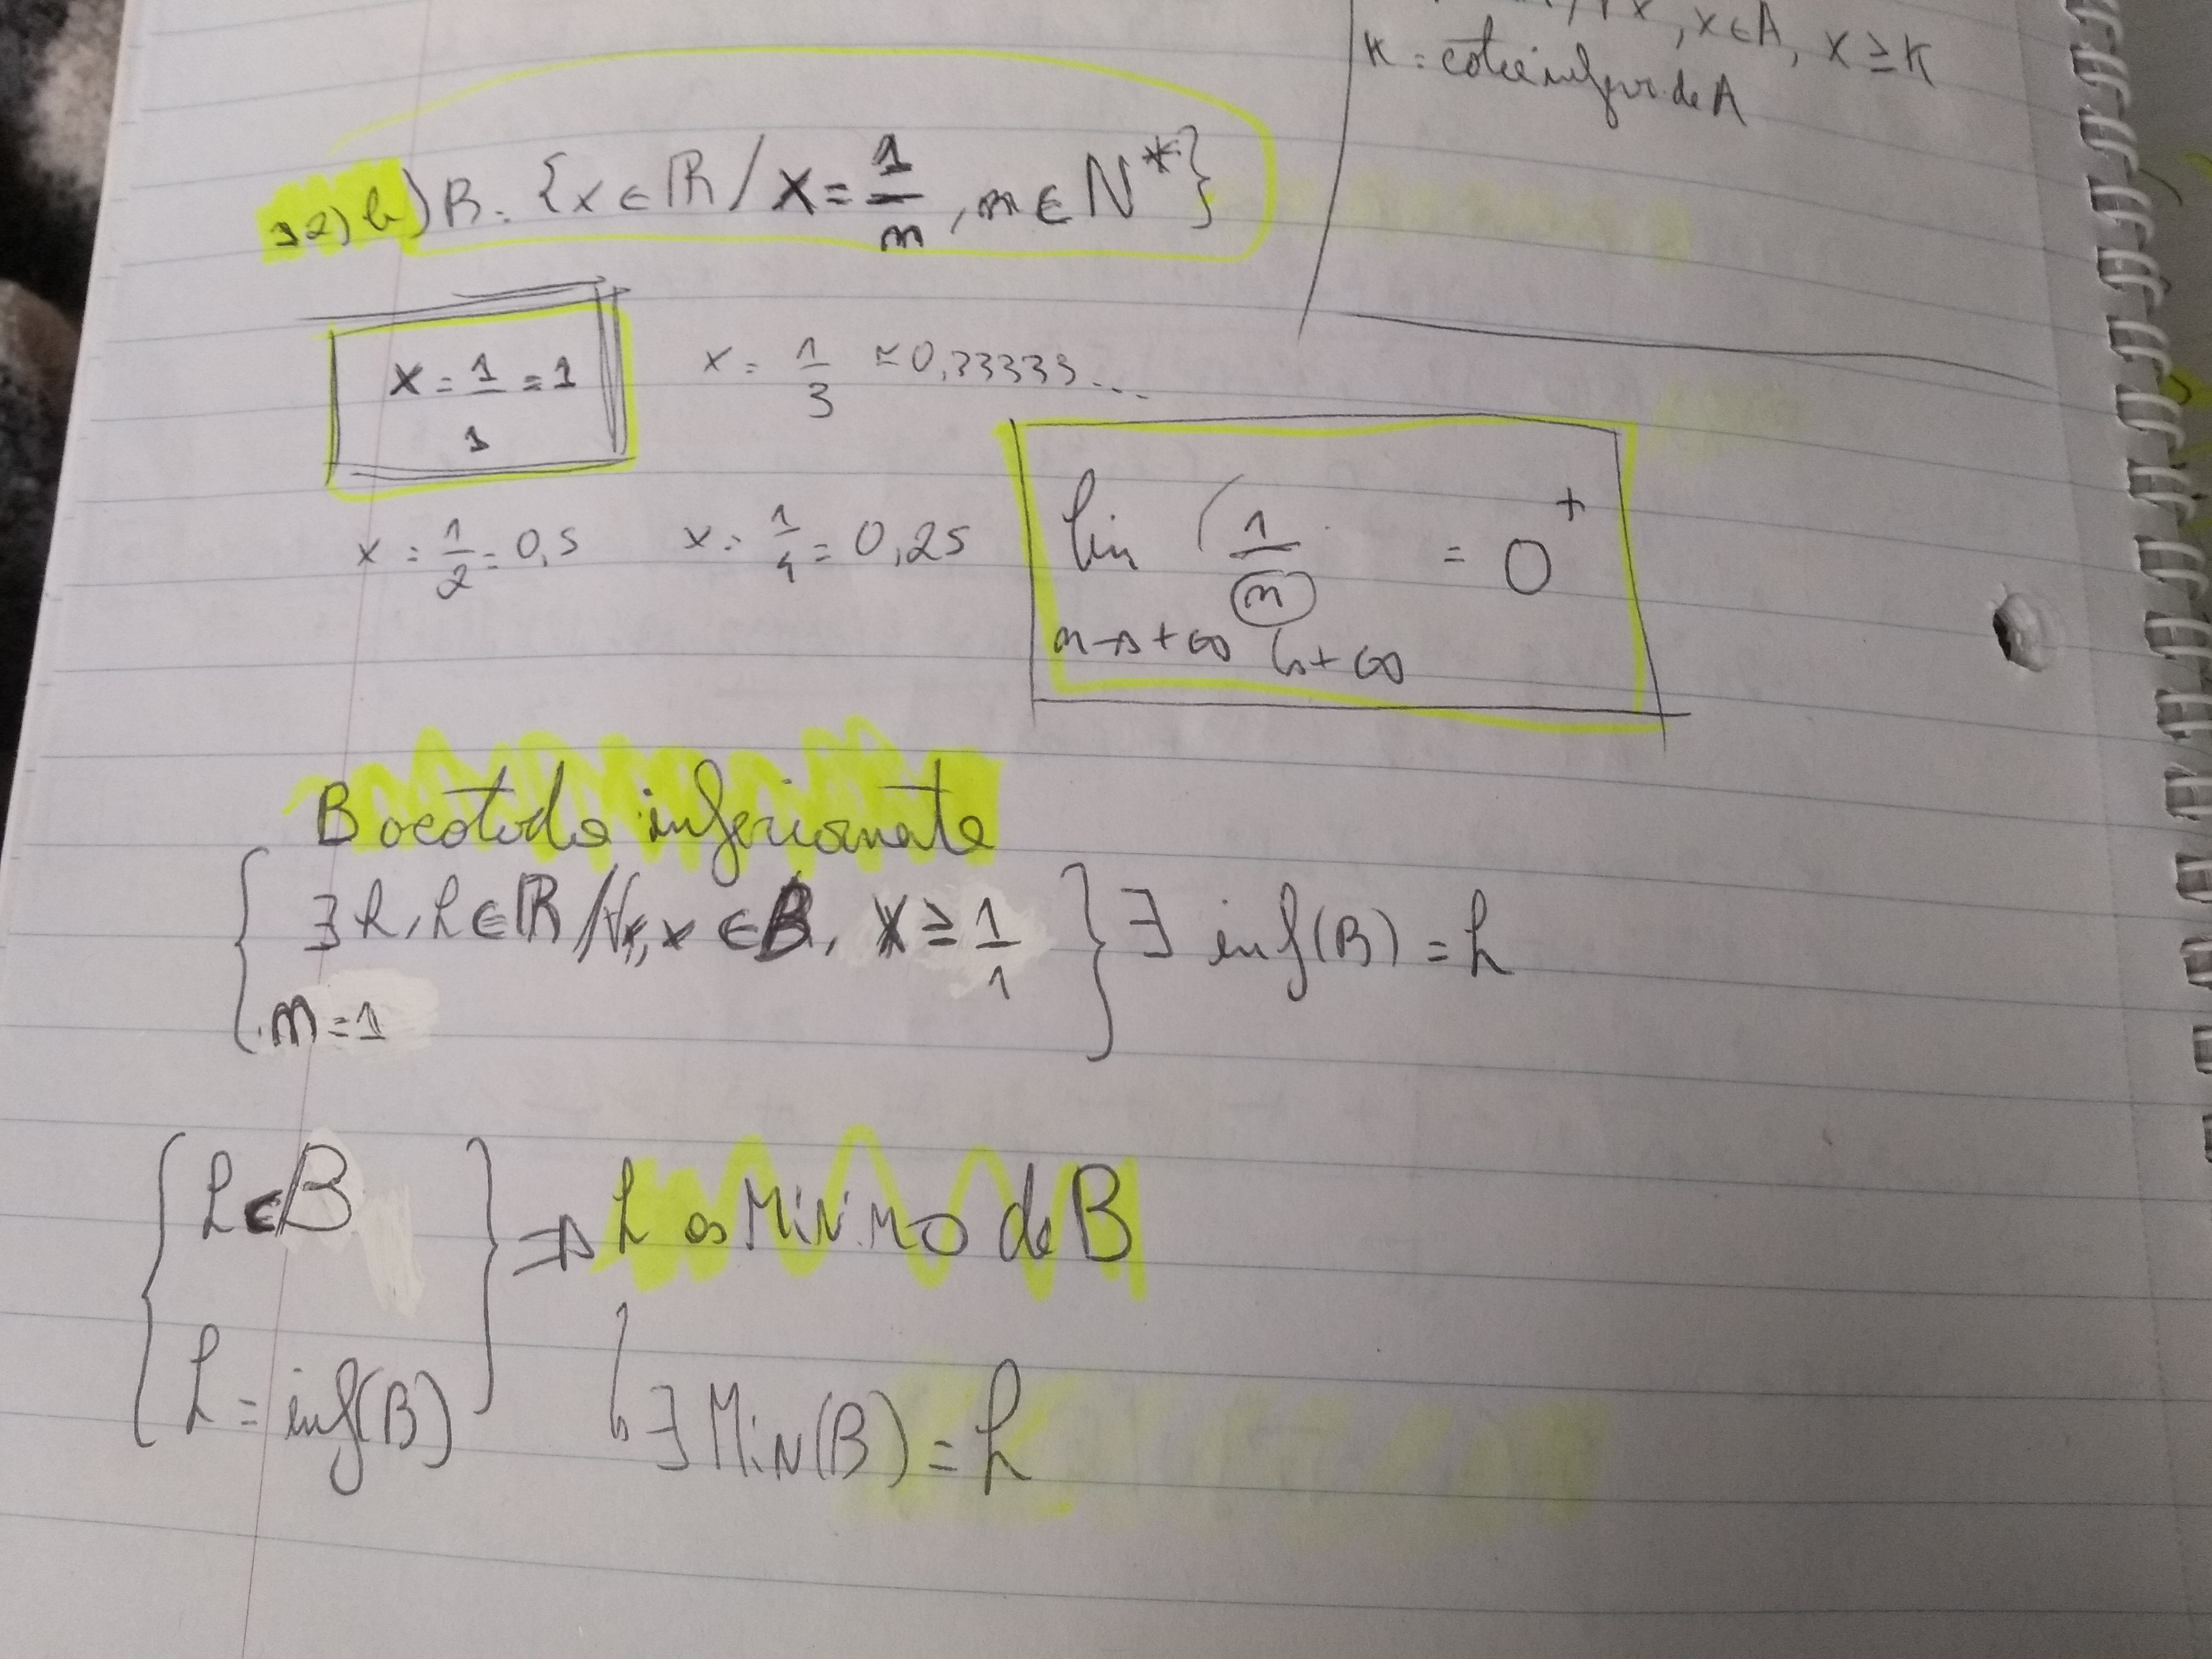 , x ∈ A, x ≥ K
K = cota infer. de A
32) b) B = {x ∈ ℝ / x = 1/n, n ∈ N*}
x = 1/1 = 1
x = 1/3 ≈ 0,33333...
x = 1/2 = 0,5
x = 1/4 = 0,25
lim ( 1/n = 0⁺
n→+∞ ↳+∞
B acotado inferiormate
{ ∃ h, h ∈ ℝ / ∀x, x ∈ B, x ≥ 1/1 } ∃ inf(B) = h
n = 1
{ h ∈ B
h = inf(B) } ⇒ h es MíNiMO de B
↳ ∃ MiN(B) = h